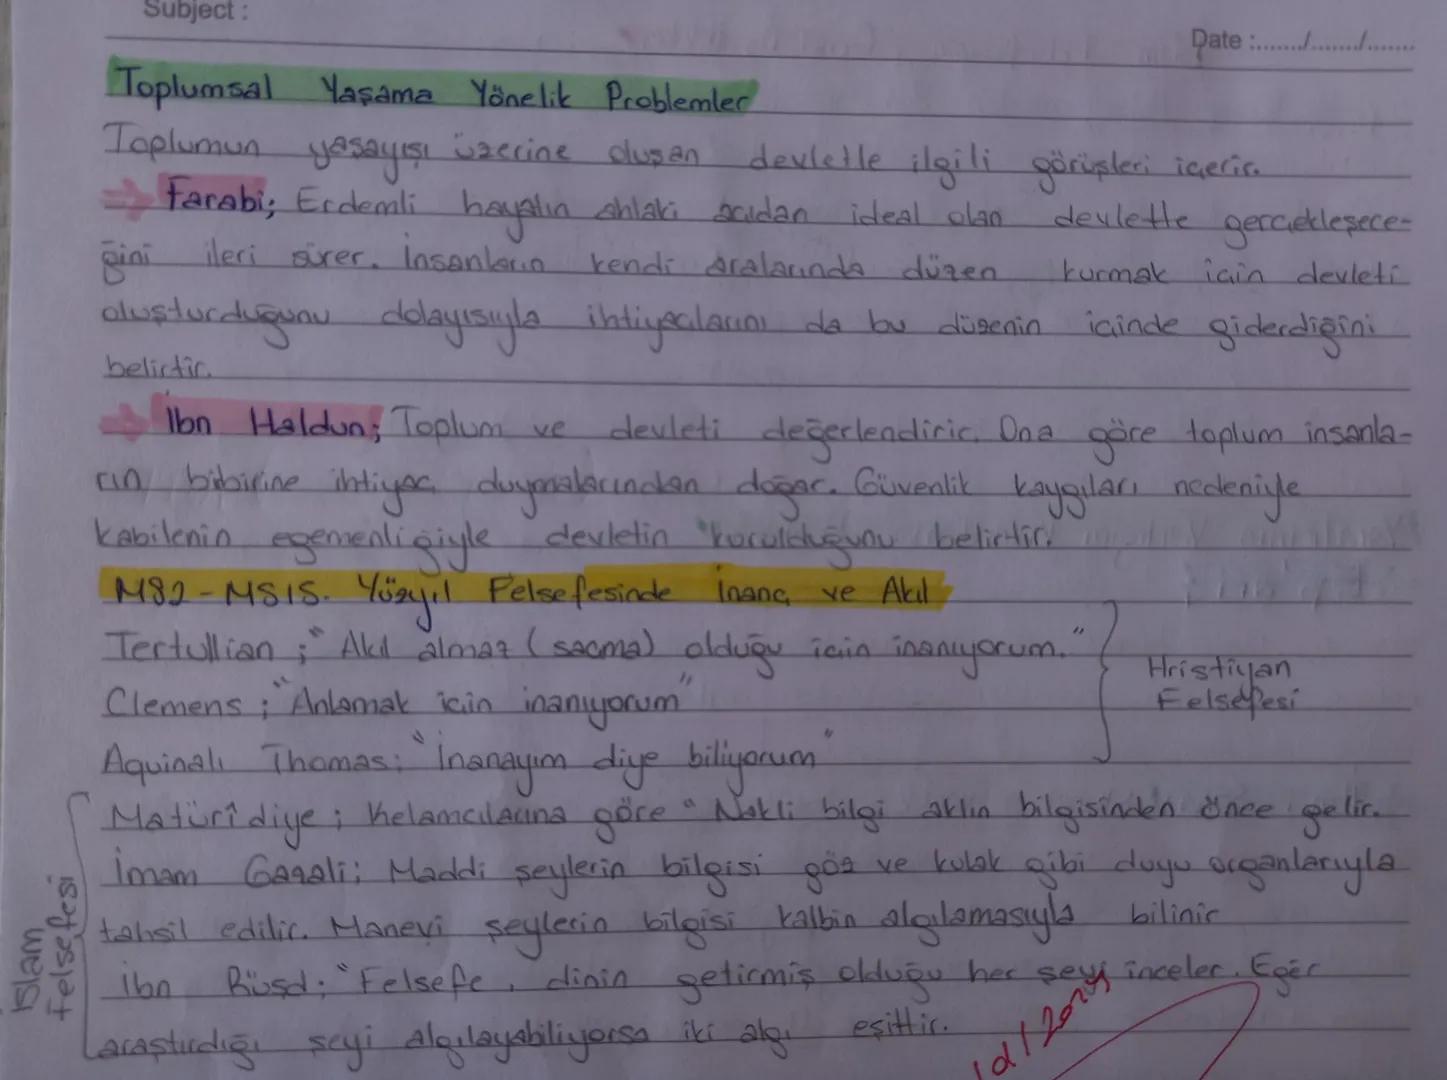 Subject :
Date :......../......../.......
Toplumsal Yaşama Yönelik Problemler
Toplumun yaşayışı üzerine oluşan devletle ilgili görüşleri içerir.
⇒ Farabi; Erdemli hayatın ahlaki açıdan ideal olan devlette gerçekleşece-
ğini ileri sürer. İnsanların kendi aralarında düzen kurmak için devleti
oluşturduğunu dolayısıyla ihtiyaçlarını da bu düzenin içinde giderdiğini
belirtir.
⇒ İbn Haldun; Toplum ve devleti değerlendirir. Ona göre toplum insanla-
rın birbirine ihtiyaç duymalarından doğar. Güvenlik kaygıları nedeniyle
kabilenin egemenliğiyle devletin kurulduğunu belirtir.
MS2-MS15. Yüzyıl Felsefesinde İnanç ve Akıl
Tertullian ; "Akıl almaz (saçma) olduğu için inanıyorum."
Clemens ; "Anlamak için inanıyorum"
Aquinalı Thomas; "İnanayım diye biliyorum"
Hristiyan
Felsefesi
Matürîdiye ; Kelamcılarına göre " Nakli bilgi aklın bilgisinden önce gelir.
İmam Gazali; Maddi şeylerin bilgisi göz ve kulak gibi duyu organlarıyla
tahsil edilir. Manevi şeylerin bilgisi kalbin algılamasıyla bilinir
İbn Rüşd; "Felsefe, dinin getirmiş olduğu her şeyi inceler. Eğer
araştırdığı şeyi algılayabiliyorsa iki algı eşittir.
İslam
Felsefesi